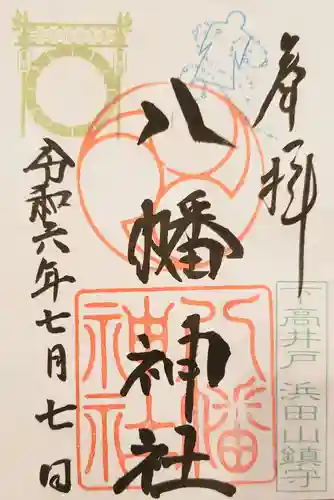 奉拝
下高井戸 浜田山鎮守
八幡神社
八幡神社
令和六年七月七日